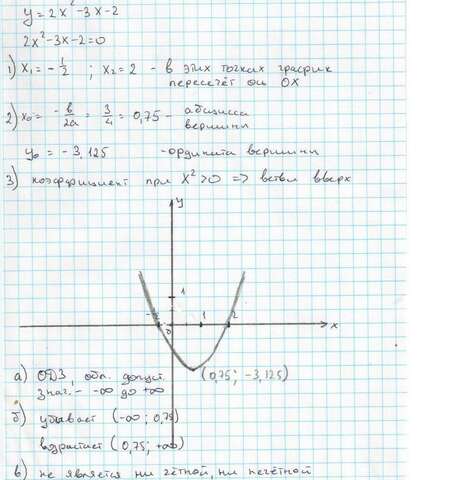 y = 2x² - 3x - 2
2x² - 3x - 2 = 0
1) x₁ = - 1/2 ; x₂ = 2 - в этих точках график
пересечёт ось OX
2) x₀ = -b/2a = 3/4 = 0,75 - абсцисса
вершины
y₀ = - 3,125 - ордината вершины
3) коэффициент при x² > 0 => ветви вверх
y
1
0 1 2 x
а) ОДЗ, обл. допуст. (0,75; -3,125)
знач. - -∞ до +∞
б) убывает (-∞; 0,75)
возрастает (0,75; +∞)
в) не является ни чётной, ни нечётной